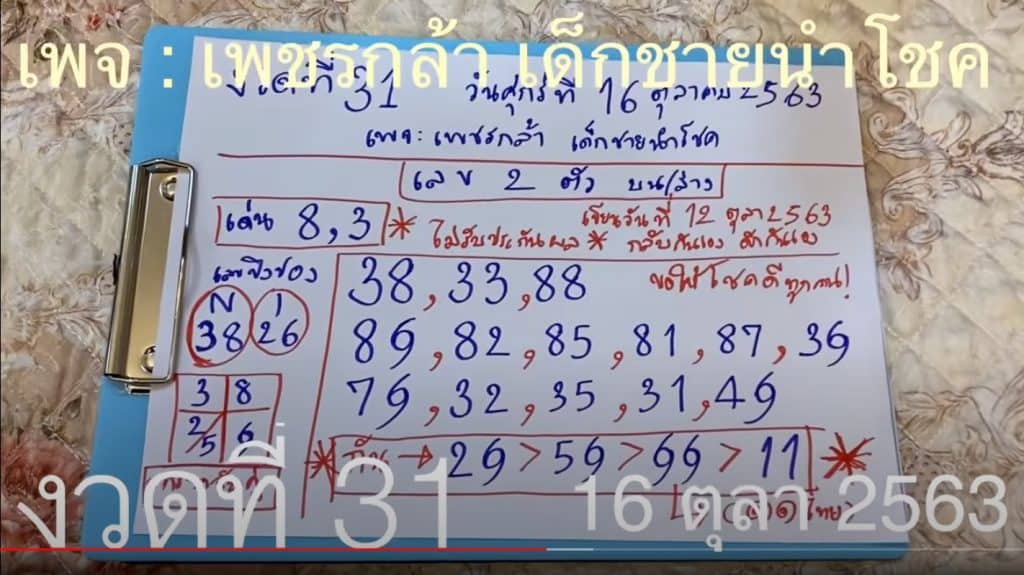 เพจ : เพชรกล้า เด็กชายนำโชค
งวดที่ 31 วันศุกร์ที่ 16 ตุลาคม 2563
เพจ: เพชรกล้า เด็กชายนำโชค
เลข 2 ตัว บน/ล่าง
เด่น 8,3 * เขียนวันที่ 12 ตุลา 2563
ไม่รับประกันผล * กลับกันเอง
38, 33, 88 ขอให้โชคดีทุกคน!
N 1
38 26
89, 82, 85, 81, 87, 39
79, 32, 35, 31, 49
3 8
2/5 6
* กัน → 29 > 59 > 99 > 11 *
งวดที่ 31 16 ตุลา 2563